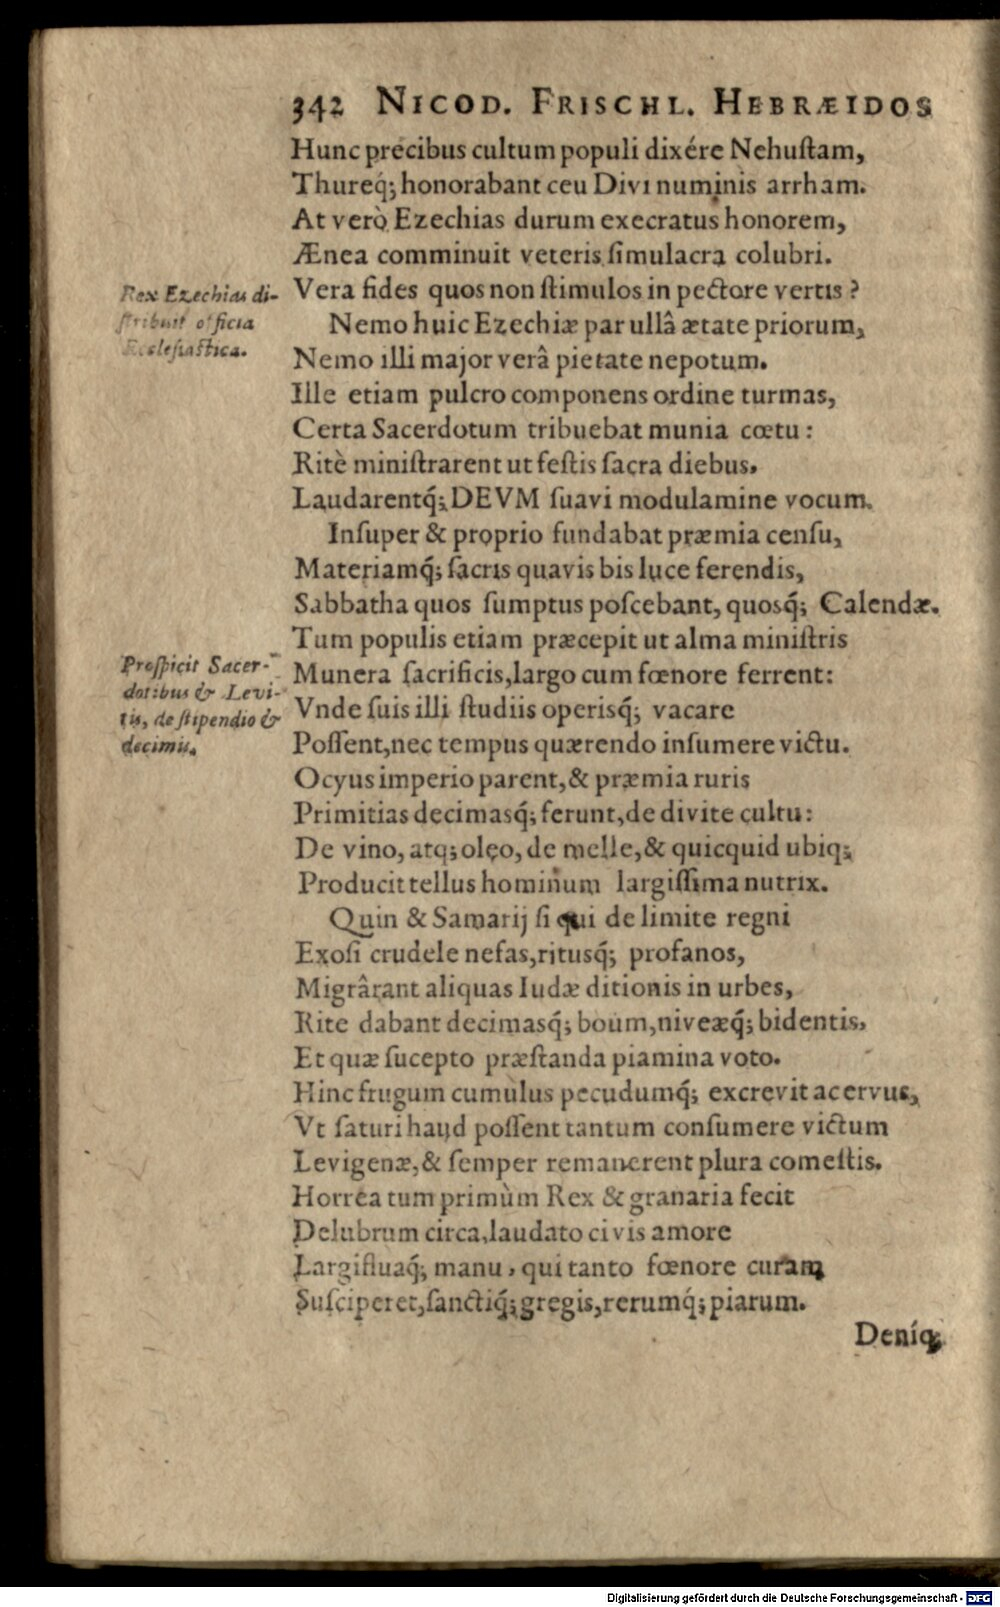 342 NICOD. FRISCHL. HEBRÆIDOS
Hunc precibus cultum populi dixére Nehuſtam,
Thureq́; honorabant ceu Divi numinis arrham.
At verò Ezechias durum execratus honorem,
Ænea comminuit veteris ſimulacra colubri.
Rex Ezechias di-
ſtribuit officia
Eccleſiaſtica.
Vera fides quos non ſtimulos in pectore vertis?
Nemo huic Ezechiæ par ullâ ætate priorum,
Nemo illi major verâ pietate nepotum.
Ille etiam pulcro componens ordine turmas,
Certa Sacerdotum tribuebat munia cœtu:
Ritè miniſtrarent ut feſtis ſacra diebus,
Laudarentq́; DEVM ſuavi modulamine vocum.
Inſuper & proprio fundabat præmia cenſu,
Materiamq́; ſacris quavis bis luce ferendis,
Sabbatha quos ſumptus poſcebant, quosq́; Calendæ.
Tum populis etiam præcepit ut alma miniſtris
Proſpicit Sacer-
dotibus & Levi-
tis, de ſtipendio &
decimis.
Munera ſacrificis, largo cum fœnore ferrent:
Vnde ſuis illi ſtudiis operisq́; vacare
Poſſent, nec tempus quærendo inſumere victu.
Ocyus imperio parent, & præmia ruris
Primitias decimasq́; ferunt, de divite cultu:
De vino, atq; oleo, de melle, & quicquid ubiq;
Producit tellus hominum largiſſima nutrix.
Quin & Samarij ſi qui de limite regni
Exoſi crudele nefas, ritusq́; profanos,
Migrârant aliquas Iudæ ditionis in urbes,
Rite dabant decimasq́; boum, niveæq́; bidentis,
Et quæ ſucepto præſtanda piamina voto.
Hinc frugum cumulus pecudumq́; excrevit acervus,
Vt ſaturi haud poſſent tantum conſumere victum
Levigenæ, & ſemper remanerent plura comeſtis.
Horrea tum primùm Rex & granaria fecit
Delubrum circa, laudato civis amore
Largifluaq́; manu, qui tanto fœnore curam
Suſciperet, ſanctiq́; gregis, rerumq́; piarum.
Deníq;
Digitalisierung gefördert durch die Deutsche Forschungsgemeinschaft - DFG